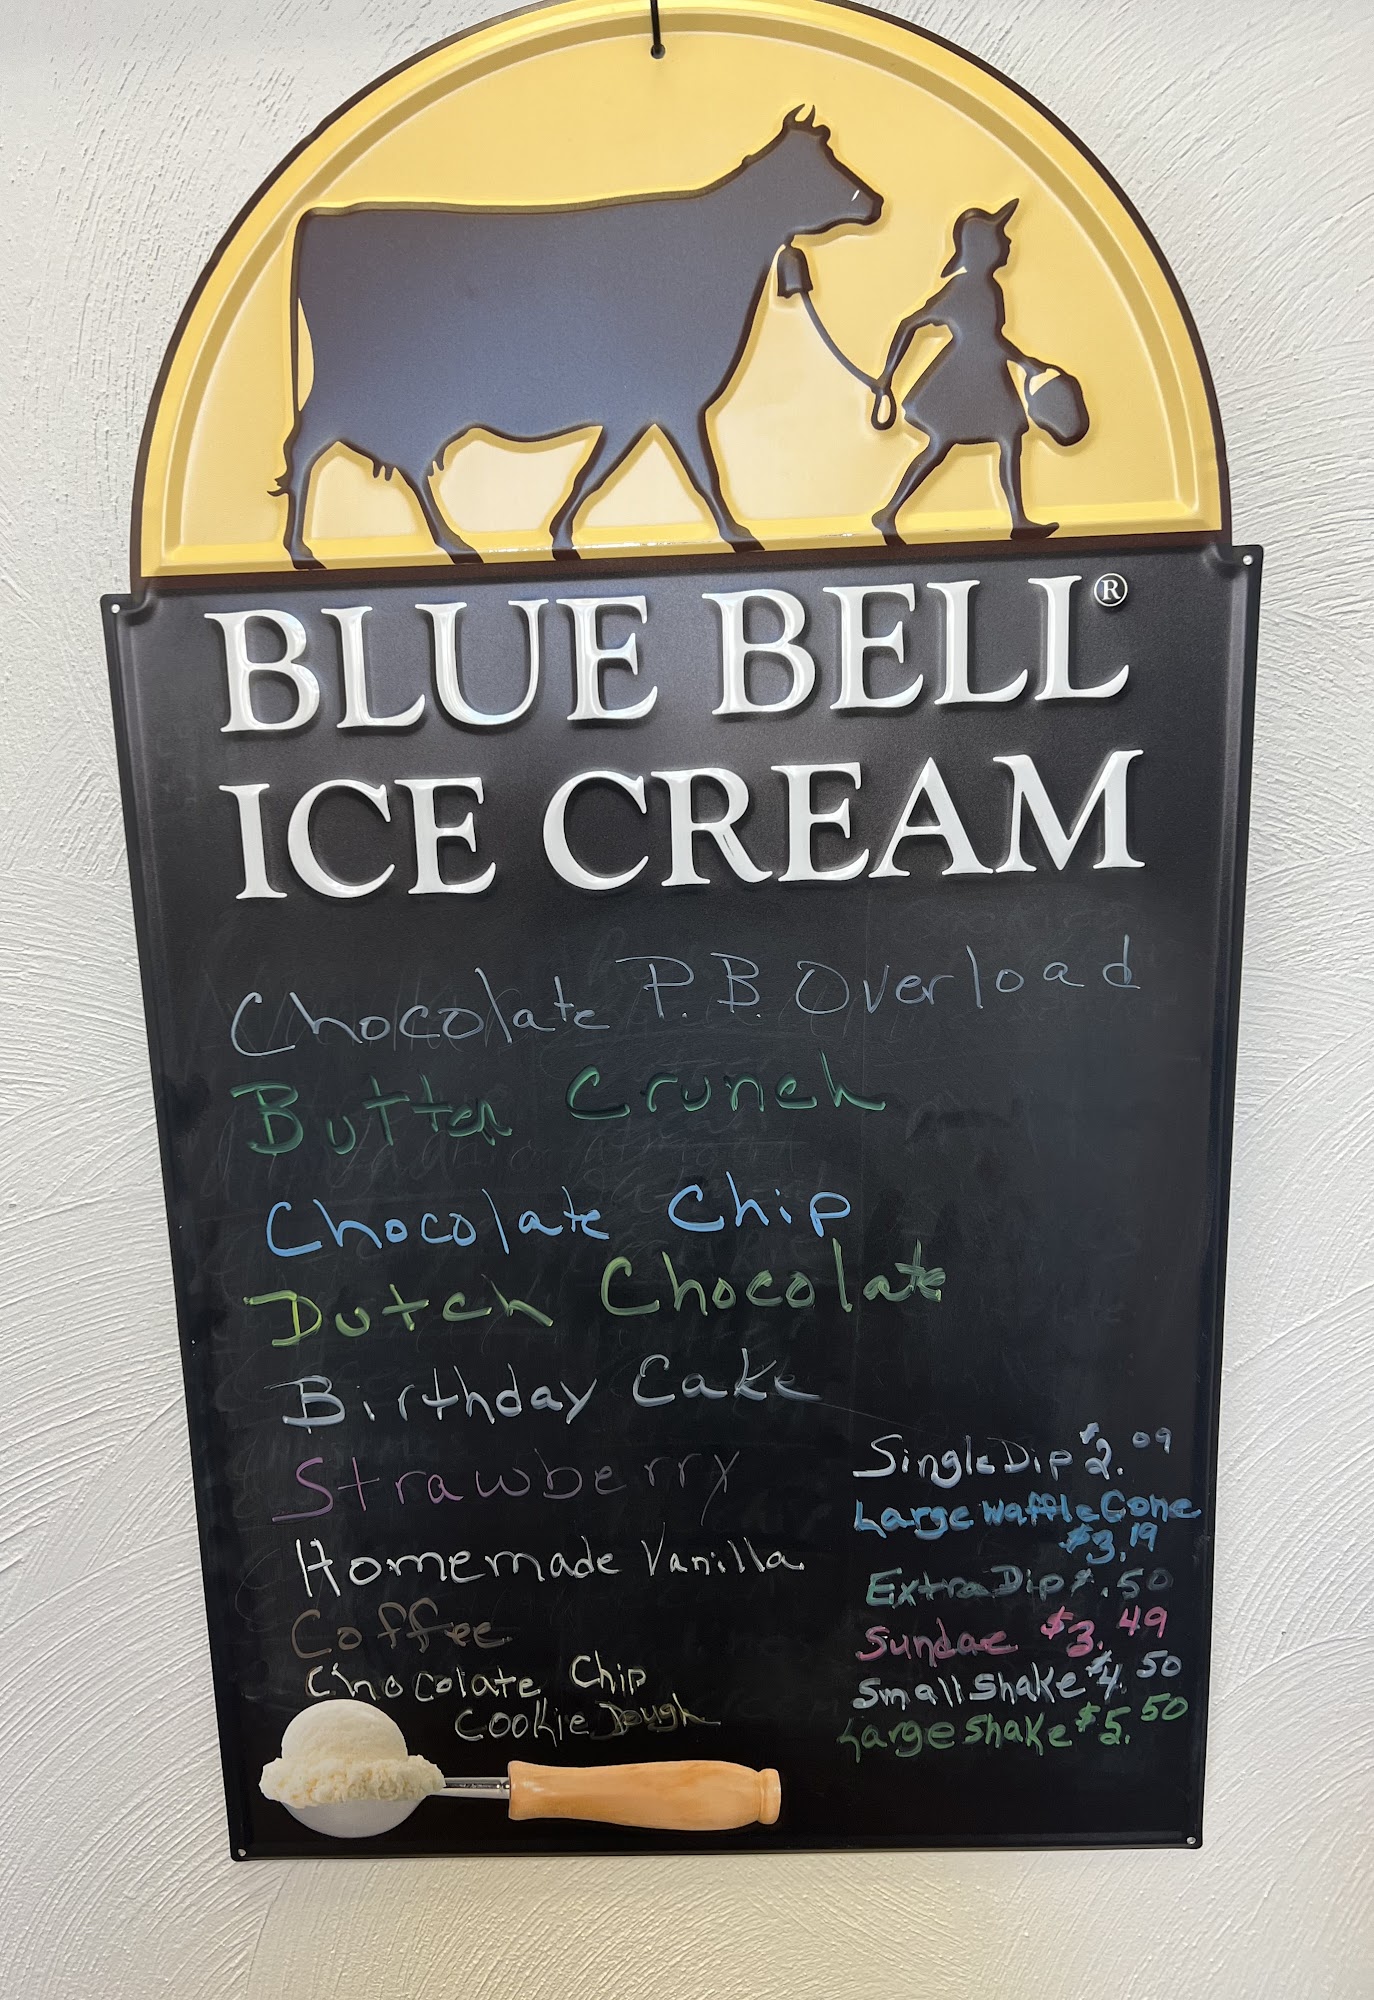 BLUE BELL®
ICE CREAM
Chocolate P.B. Overload
Butter Crunch
Chocolate Chip
Dutch Chocolate
Birthday Cake
Strawberry
Homemade Vanilla
Coffee
Chocolate Chip
Cookie Dough
Single Dip $2.09
Large Waffle Cone
$3.19
Extra Dip $.50
Sundae $3.49
Small Shake $4.50
Large Shake $5.50